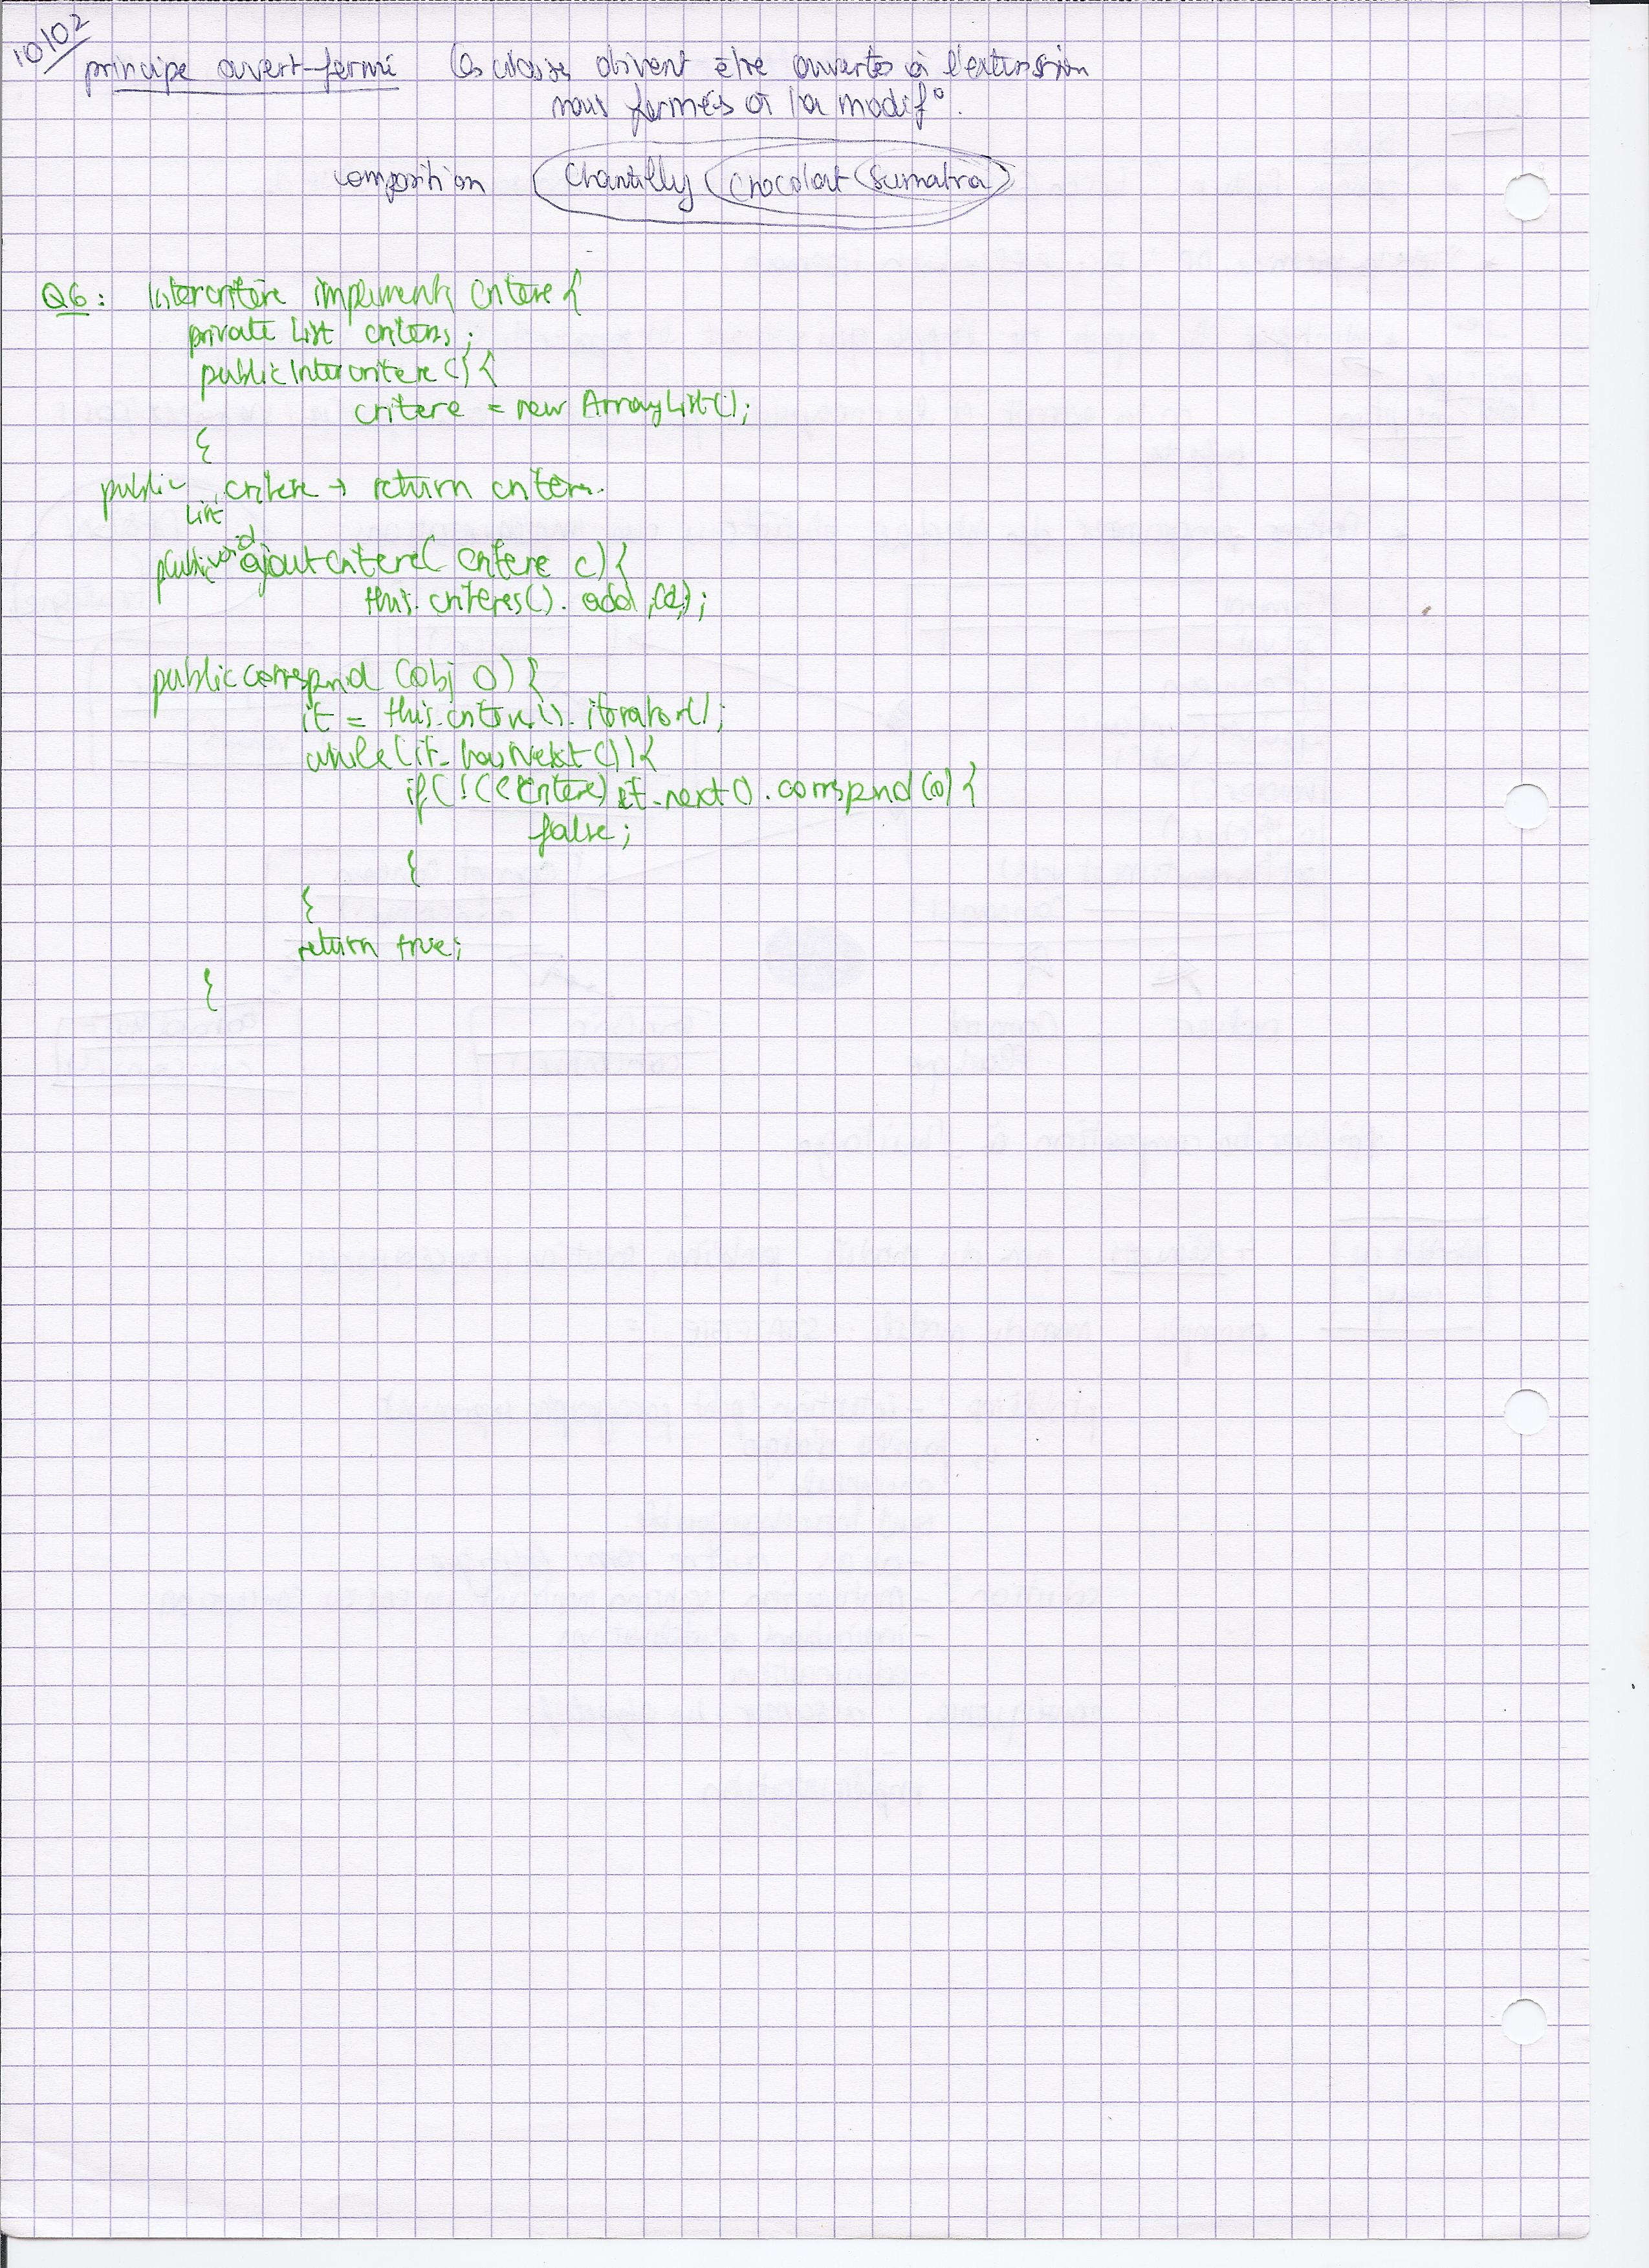 10/02
principe ouvert-fermé les classes doivent être ouvertes à l'extension
mais fermées à la modif°.
composition Chantilly Chocolat Sumatra
Q6: Intercritère implements Critere {
private List criteres;
public Intercritere () {
critere = new ArrayList();
}
public List critere → return criteres.
public void ajoutCritere( Critere c) {
this.criteres(). add (c);
public correspond (Obj o) {
it = this.criteres(). iterator();
while (it.hasNext ()) {
if ( !((Critere) it.next() . correspond (o) {
false;
}
}
return true;
}